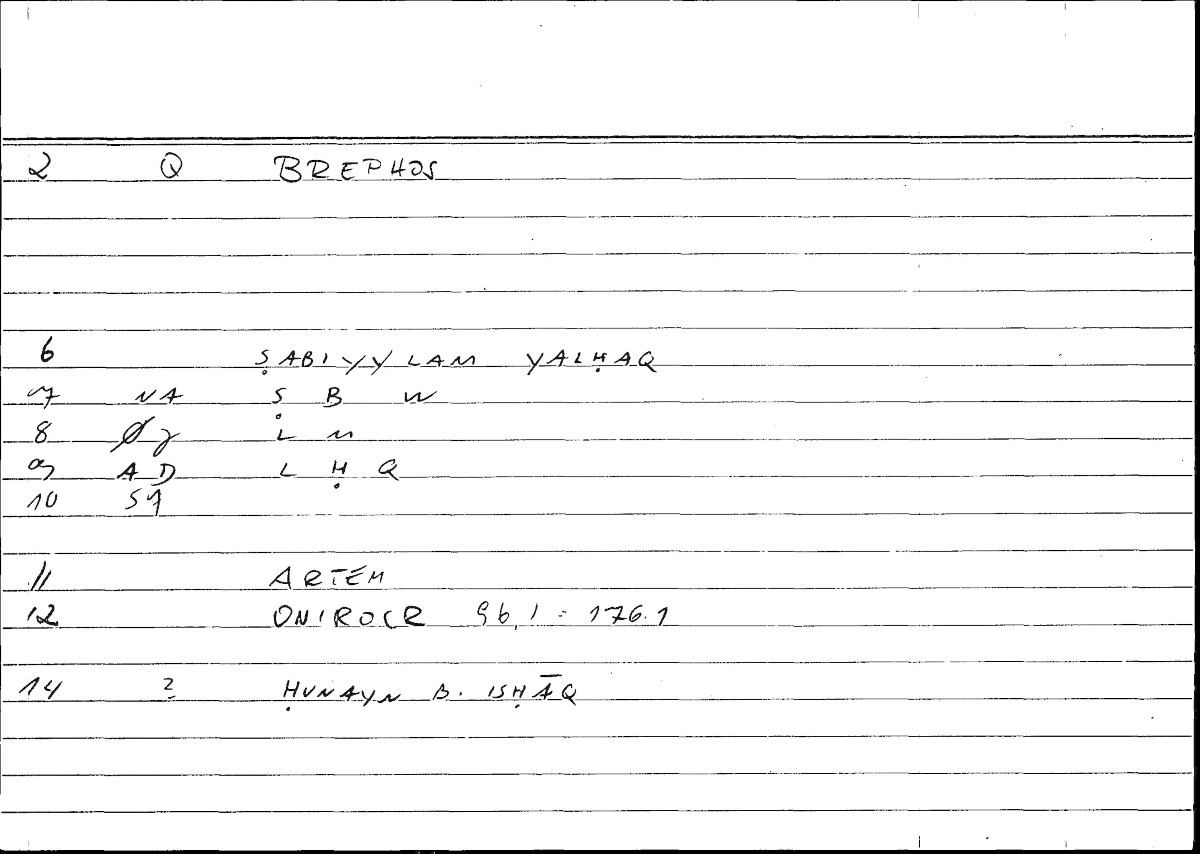 2 Q BREPHOS
6 ṢABIYY LAM YALḤAQ
7 NA Ṣ B W
8 L M
9 AD L Ḥ Q
10
11 ARTEM
12 ONIROCR 96,1 = 176.1
14 2 ḤUNAYN B. ISḤĀQ